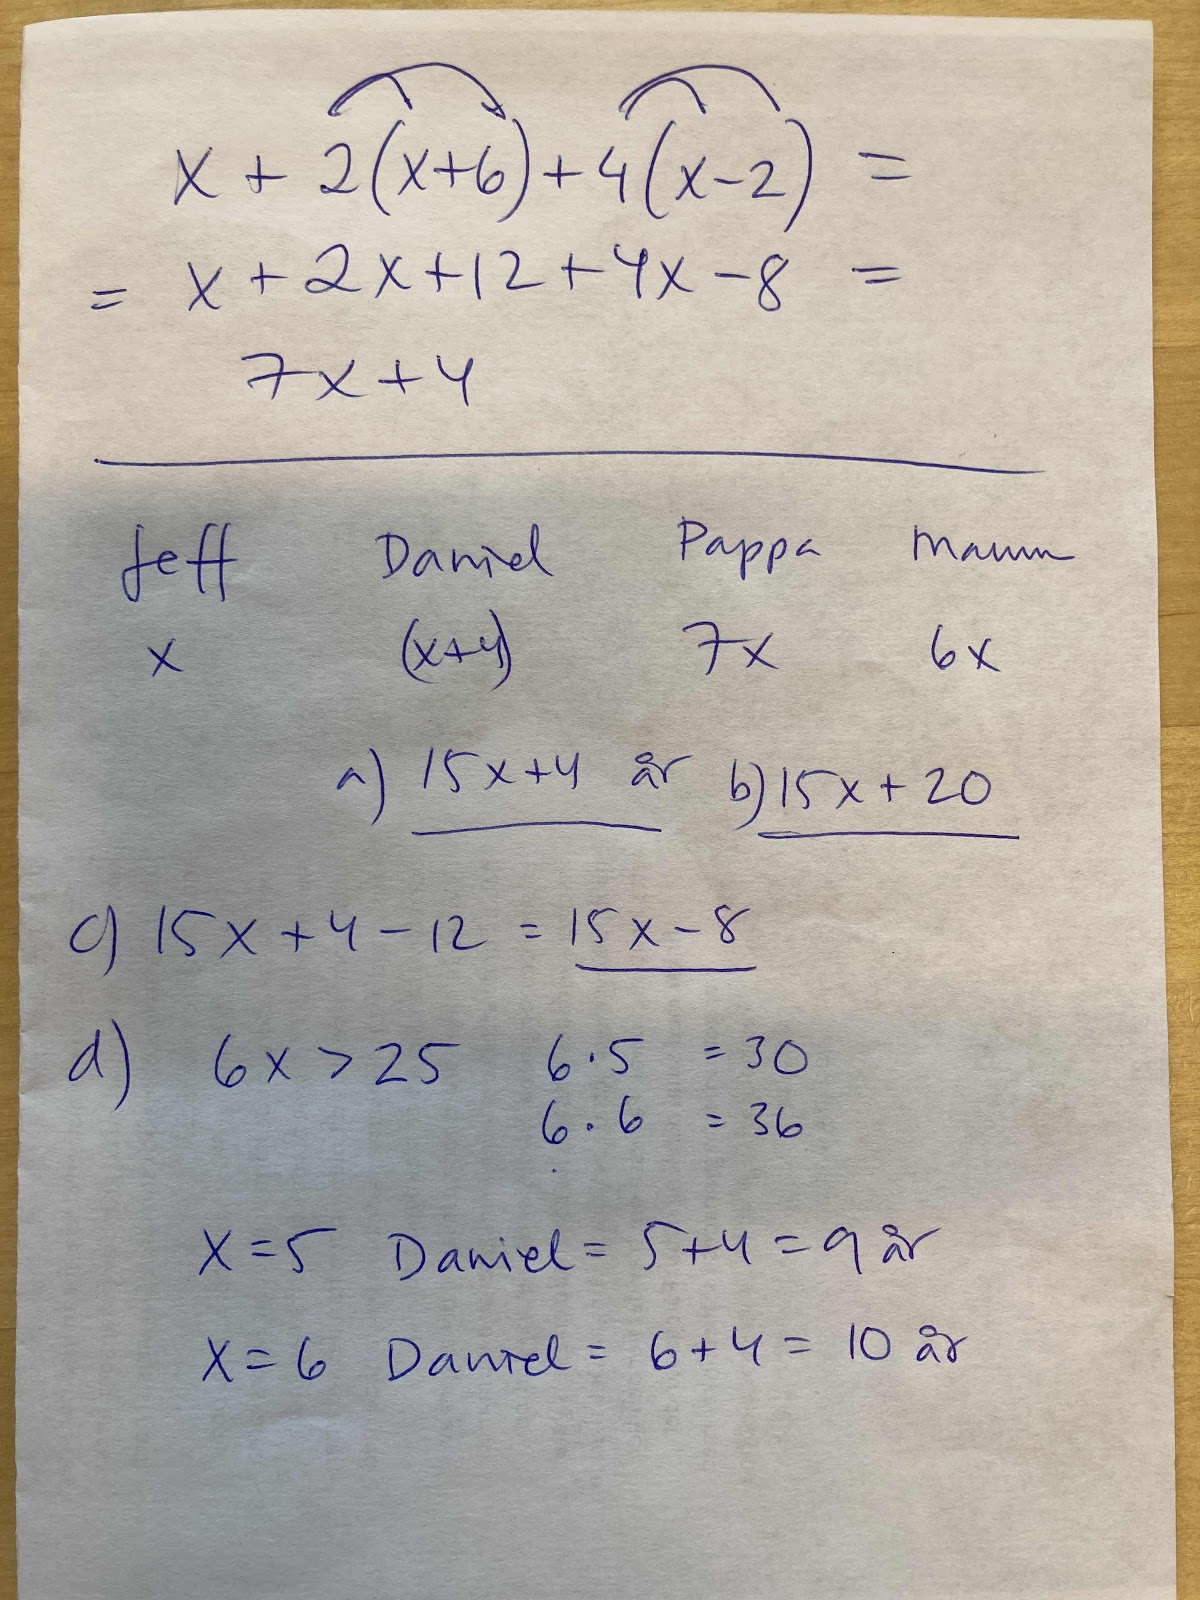 x + 2(x+6) + 4(x-2) =
= x + 2x + 12 + 4x - 8 =
7x + 4
Jeff Daniel Pappa Mamma
x (x+4) 7x 6x
a) 15x+4 år b) 15x + 20
c) 15x + 4 - 12 = 15x - 8
d) 6x > 25 6·5 = 30
6·6 = 36
x = 5 Daniel = 5+4 = 9 år
x = 6 Daniel = 6+4 = 10 år